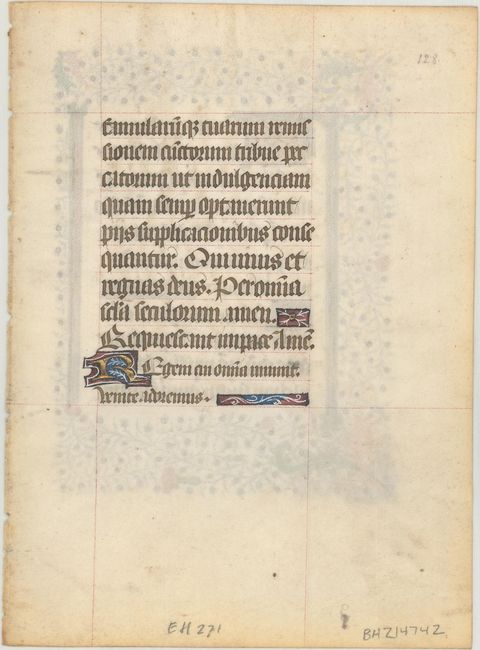 128
famularūqꝫ tuarum remiſ
ſionem cūctorum tribue pec
catorum ut indulgenciam
quam ſemꝑ optauerunt
pijs ſupplicacionibus conſe
quantur. Qui uiuis et
regnas deus. Per omīa
ſcl̄a ſeculorum. amen.
Requieſcant in pace Amē.
Regem cui omīa uiuunt.
venite adoremus.
EH 271
BHZ14742